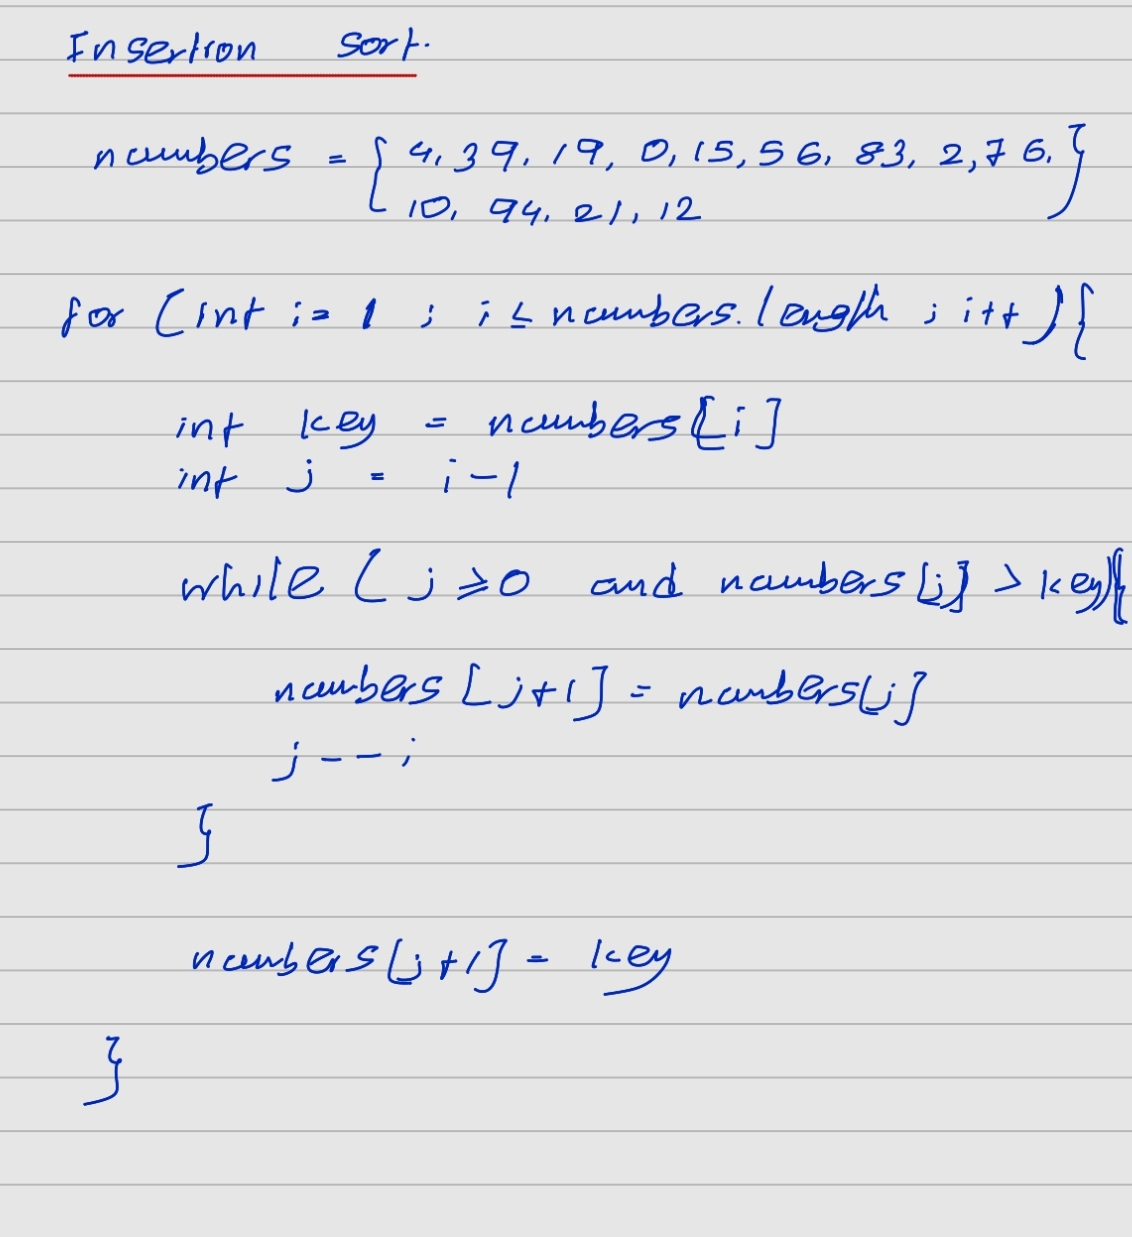 Insertion sort.
numbers = { 4, 39, 19, 0, 15, 56, 83, 2, 76,
10, 94, 21, 12 }
for (int i = 1 ; i ≤ numbers.length ; i++ ) {
int key = numbers[i]
int j = i - 1
while ( j ≥ 0 and numbers[j] > key) {
numbers [j+1] = numbers[j]
j - - ;
}
numbers[j+1] = key
}